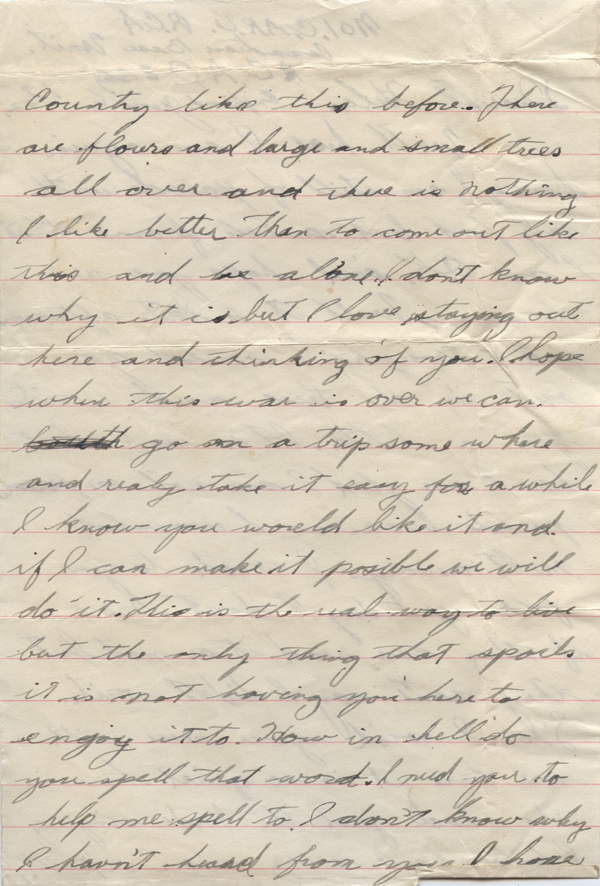 Country like this before. There
are flours and large and small trees
all over and there is nothing
I like better than to come out like
this and be alone. I don't know
why it is but I love staying out
here and thinking of you. I hope
when this war is over we can.
go on a trip some where
and realy take it easy for a while
I know you woreld like it and.
if I can make it posible we will
do it. This is the real way to live
but the only thing that spoils
it is not having you here to
engoy it to. How in hell do
you spell that word. I need you to
help me spell to. I don't know why
I havn't heard from you I hope